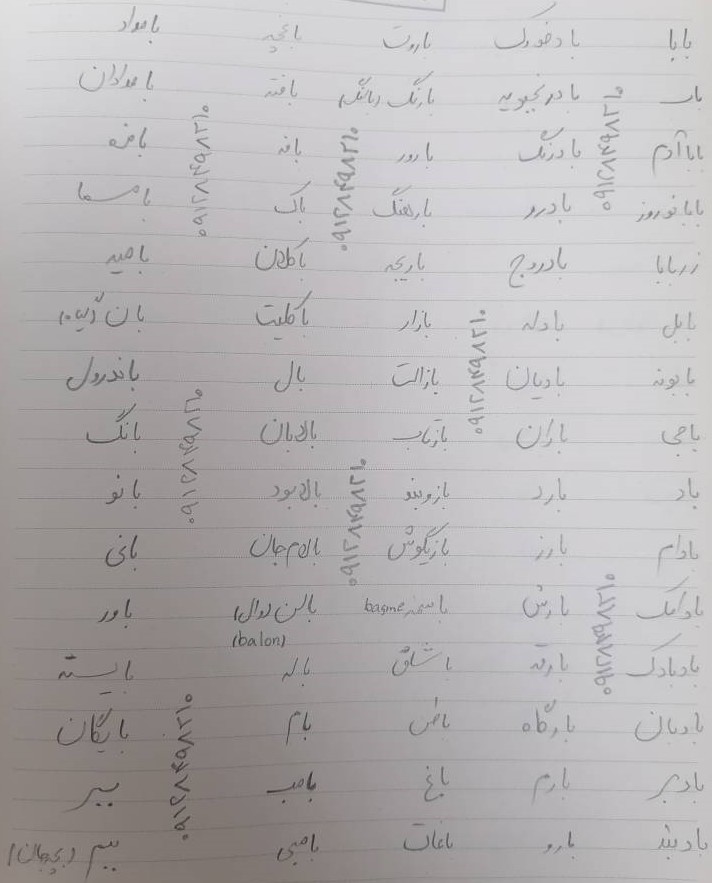 بابا بادخورک باروت باغچه بامداد
باب بادرنجبویه بارنگ (بانگ) بافته بامدادان
باباآدم بادرنگ بارور بافه بامزه
بابانوروز بادرو بارهنگ باک بامسما
زربابا بادروج باریجه باکلان بامیه
بابل بادله بازار باکلیت بان (گیاه)
بابونه بادیان بازالت بال باندرول
باجی باران بازتاب بالابان بانگ
باد بارد بازوبند بالابود بانو
بادام بارز بازیگوش بالام جان بانی
بادامک بارش باسمه basme بالن (وال) (balon) باور
بادبادک بارقه باشلق باله بایسته
بادبان بارگاه باض بام بایگان
بادبر بارم باغ بامب ببر
بادبند بارو باغات بامبی ببم (بچه‌جان)